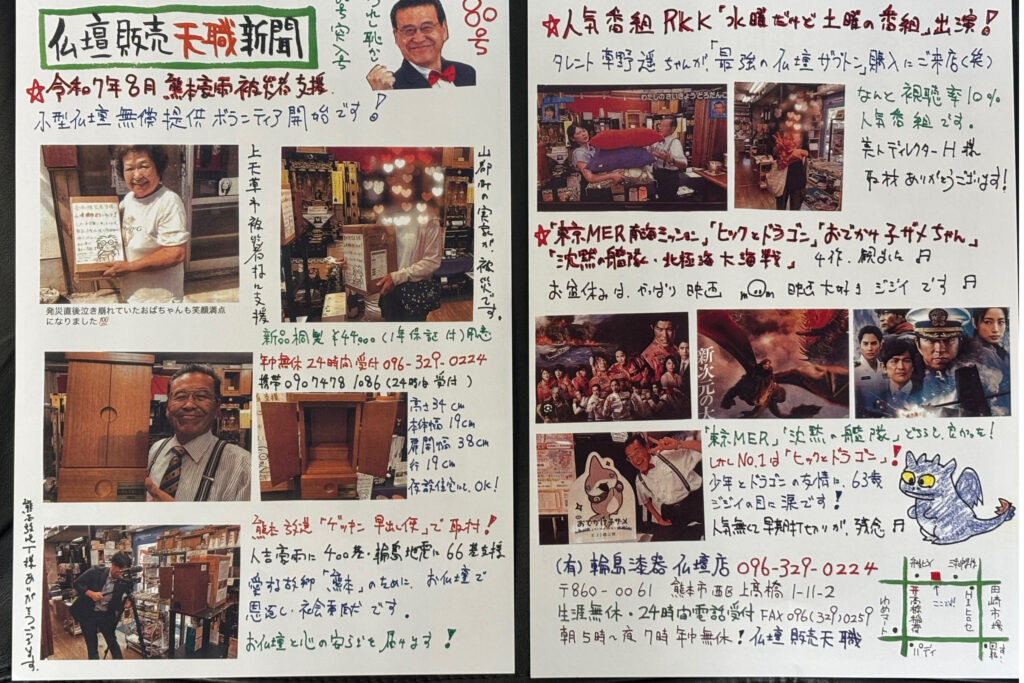 仏壇販売天職新聞
80号
うれし恥かし
いち突入号
☆令和7年8月 熊本豪雨被災者支援.
小型仏壇 無償提供 ボランティア開始です!
上天草市被災者様に支援
山都町の実家が被災です。
発災直後泣き崩れていたおばちゃんも笑顔満点
になりました💯
新品桐製 ¥44,000(1年保証付)用意
年中無休 24時間受付 096-329-0224
携帯 090 7478 1086 (24時間受付)
高さ34cm
本体幅19cm
扉開幅38cm
行19cm
仮設住宅にも、OK!
熊本放送「ゲツキン早出し便」で取材!
人吉豪雨に400基・輪島地震に66基支援
愛する故郷「熊本」のために、お仏壇で
恩返し・社会貢献です。
お仏壇と心の安らぎを届けます!
ありがとうございます。
☆人気番組 RKK「水曜だけど土曜の番組」出演!
タレント 草野遥ちゃんが、「最強の仏壇ザブトン」購入にご来店(笑)
わたしのさいきょうどろだんご
なんと視聴率10%
人気番組です。
美人ディレクターH様
取材ありがとうございます!
☆「東京MER 南海ミッション」「ヒックとドラゴン」「おでかけ子ザメちゃん」
「沈黙の艦隊・北極海大海戦」 4作、観ました
お盆休みは、やっぱり映画 映画大好きジジイです
新次元の大
「東京MER」「沈黙の艦隊」どちらも、良かった!
しかしNO.1は「ヒックとドラゴン」!
少年とドラゴンの友情に、63歳
ジジイの目に涙です!
人気無くて早期打ち切りが、残念
おでかけ子ザメ
(有)輪島漆器仏壇店 096-329-0224
〒860-0061 熊本市西区上高橋1-11-2
生涯無休・24時間電話受付 FAX 096(329)0259
朝5時〜夜7時 年中無休! 仏壇販売天職
ここです!
高橋稲荷
ヒロセ
田崎市場
ゆめマート